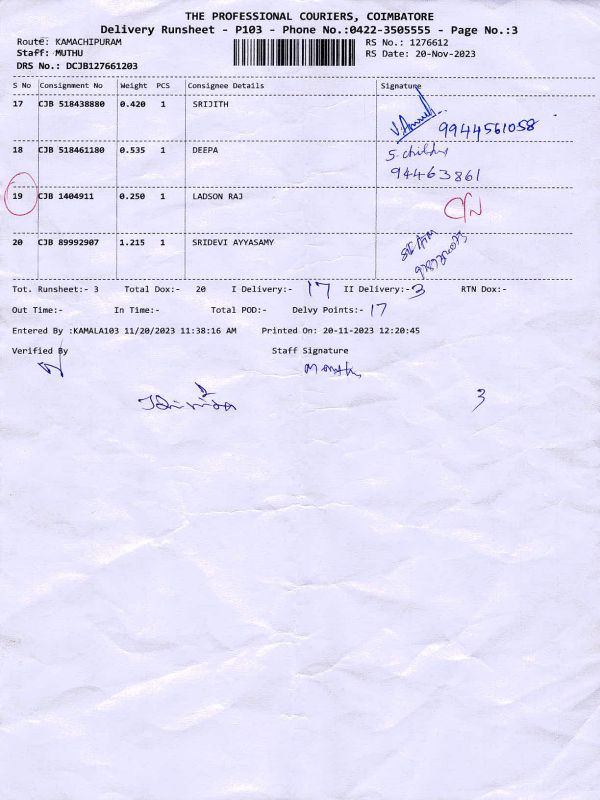 THE PROFESSIONAL COURIERS, COIMBATORE
Delivery Runsheet - P103 - Phone No.:0422-3505555 - Page No.:3
Route: KAMACHIPURAM RS No.: 1276612
Staff: MUTHU RS Date: 20-Nov-2023
DRS No.: DCJB127661203
S No Consignment No Weight PCS Consignee Details Signature
17 CJB 518438880 0.420 1 SRIJITH
9944561058
18 CJB 518461180 0.535 1 DEEPA
94463861
19 CJB 1404911 0.250 1 LADSON RAJ
20 CJB 89992907 1.215 1 SRIDEVI AYYASAMY
Tot. Runsheet:- 3 Total Dox:- 20 I Delivery:- 17 II Delivery:- 3 RTN Dox:-
Out Time:- In Time:- Total POD:- Delvy Points:- 17
Entered By :KAMALA103 11/20/2023 11:38:16 AM Printed On: 20-11-2023 12:20:45
Verified By Staff Signature
3